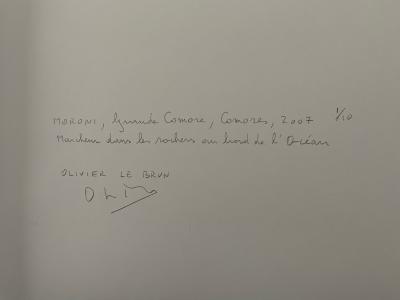 MORONI, Grande Comore, Comores, 2007 1/10
Marcheur dans les rochers au bord de l'Océan
OLIVIER LE BRUN